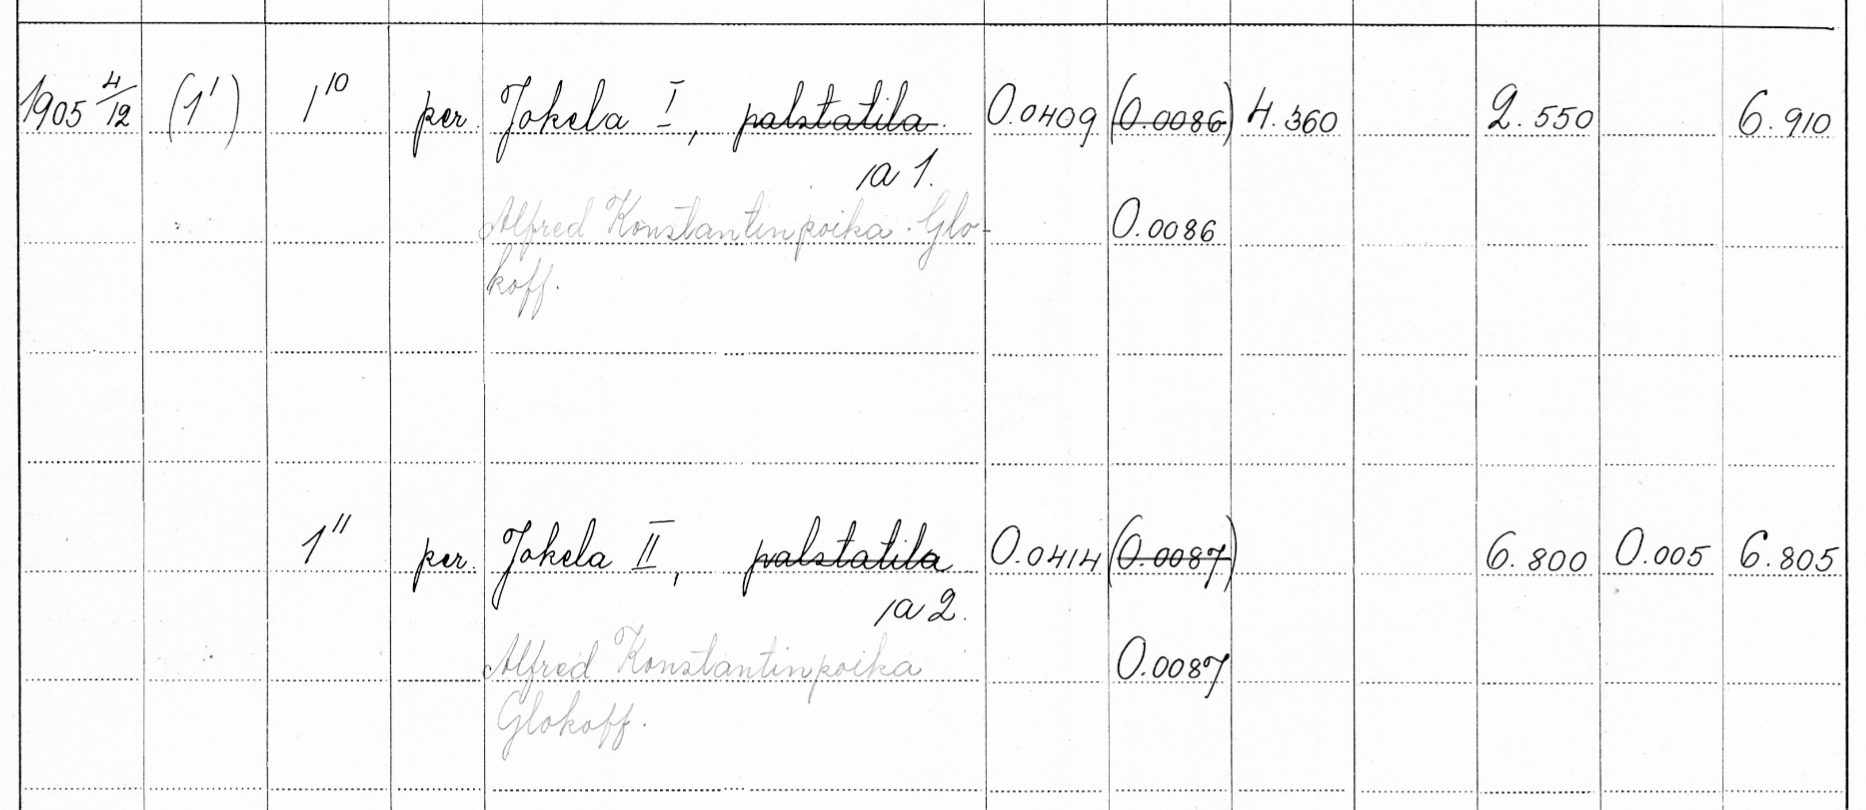 1905 4/12 (1') 1¹⁰ per. Jokela I, palstatila. 0.0409 (0.0086) 4.360 2.550 6.910
a 1.
Alfred Konstantinpoika Glo- 0.0086
koff.
1¹¹ per. Jokela II, palstatila 0.0414 (0.0087) 6.800 0.005 6.805
a 2.
Alfred Konstantinpoika 0.0087
Glokoff.